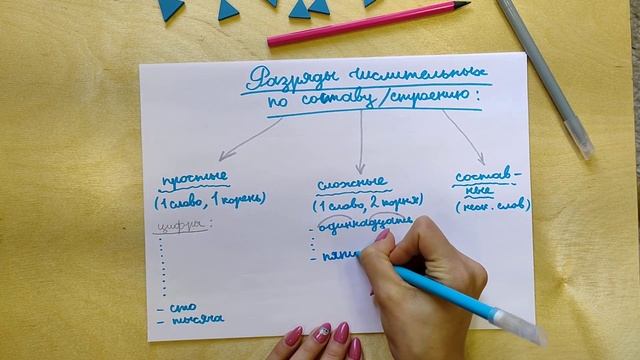 Разряды числительных
по составу/строению:
простые
(1 слово, 1 корень)
цифры:
- сто
- тысяча
сложные
(1 слово, 2 корня)
- одиннадцать
- пять
состав-
ные
(неск. слов)